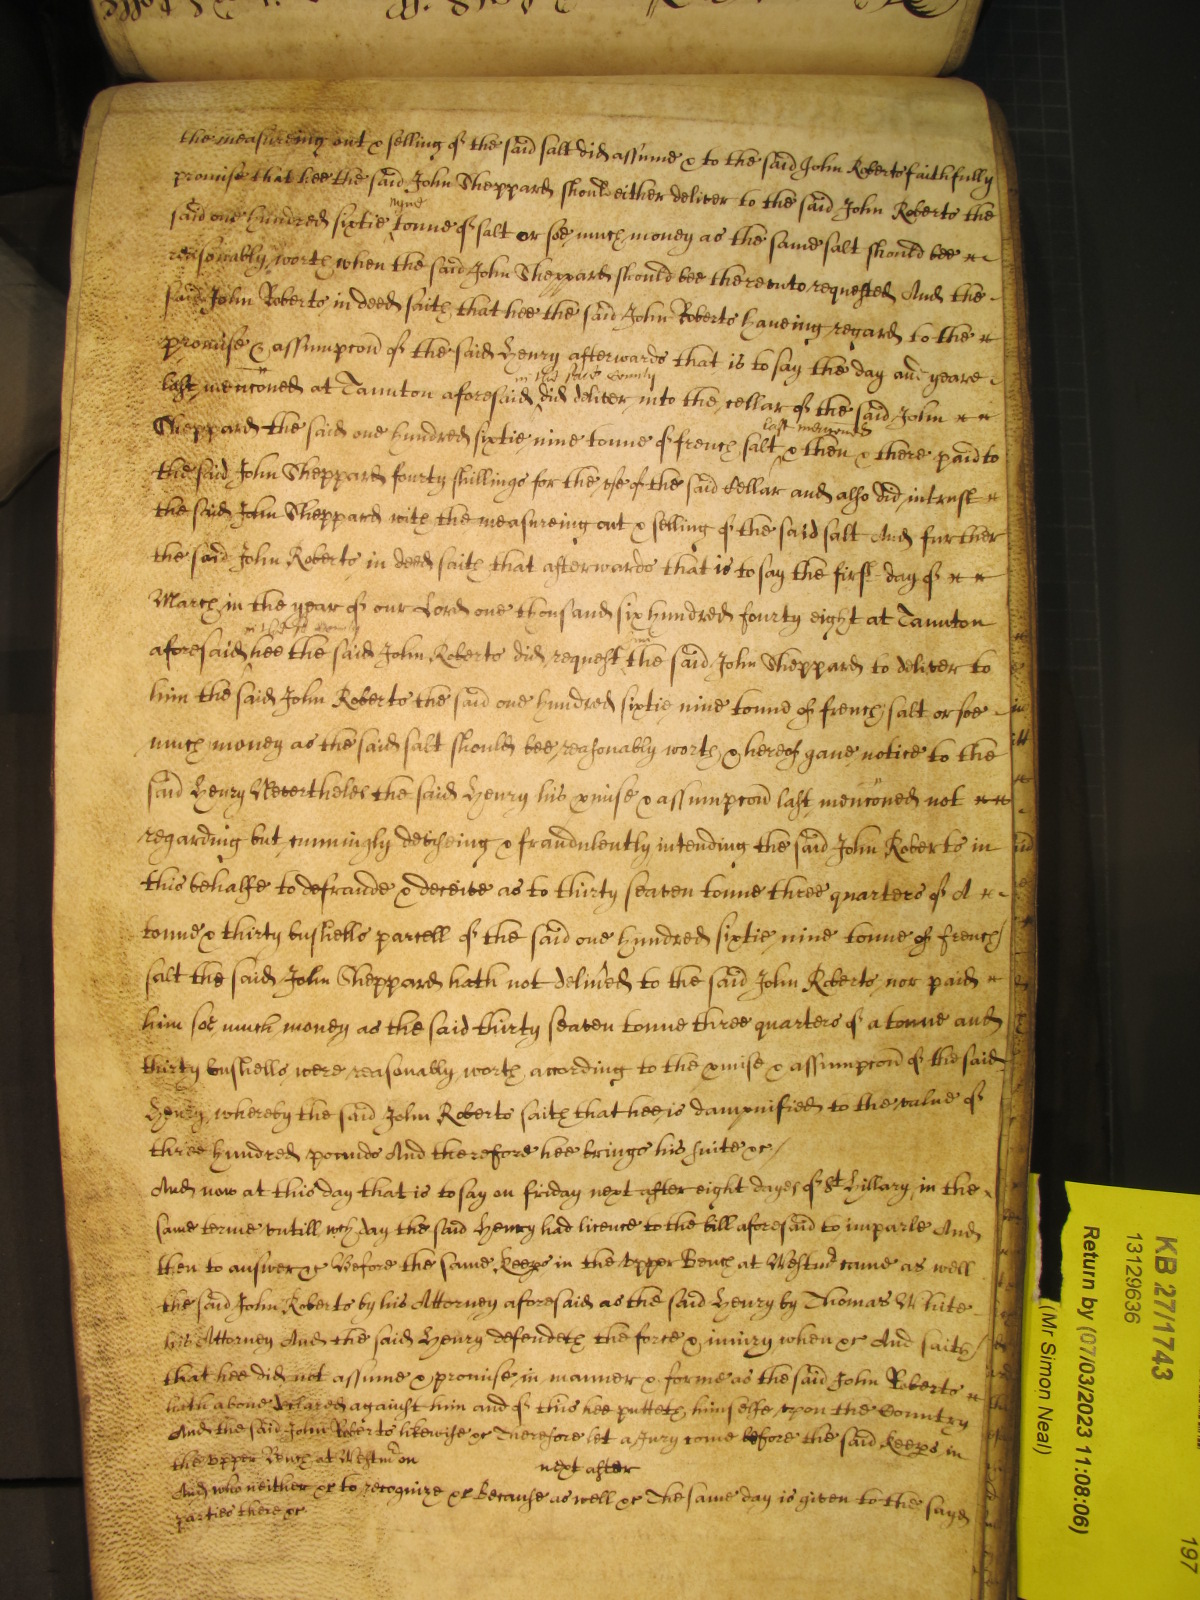 the measureing out & selling of the said salt did assume & to the said John Roberts faithfully
promise that hee the said John Sheppard should either deliver to the said John Roberts the
nyne
said one hundred sixtie tonne of salt or soe much money as the same salt should bee
reasonably worth when the said John Sheppard should bee thereunto requested And the
said John Roberts in deed saith that hee the said John Roberts haveing regard to the
promise & assumpcon of the said Henry afterwards that is to say the day and yeare
in the said County
last menconed at Taunton aforesaid did deliver into the cellar of the said John
last menconed
Sheppard the said one hundred sixtie nine tonne of french salt & then & there paid to
the said John Sheppard fourty shillings for the use of the said Cellar and also did intrust
the said John Sheppard with the measureing out & selling of the said salt And further
the said John Roberts in deed saith that afterwards that is to say the first day of
March in the year of our Lord one thousand six hundred fourty eight at Taunton
in the said County
aforesaid hee the said John Roberts did request the said John Sheppard to deliver to
him the said John Roberts the said one hundred sixtie nine tonnd of french salt or soe
much money as the said salt should bee reasonably worth & hereof gave notice to the
said Henry Neverthelesse the said Henry his pmise & assumpcon last menconed not
regarding but cunningly deviseing & fraudulently intending the said John Roberts in
this behalfe to defraude & deceive as to thirty seaven tonne three quarters of A
tonne & thirty bushells parcell of the said one hundred sixtie nine tonne of french
salt the said John Sheppard hath not delived to the said John Roberts nor paid
him soe much money as the said thirty seaven tonne three quarters of a tonne and
thirty bushells were reasonably worth according to the pmise & assumpcon of the said
Henry whereby the said John Roberts saith that hee is dampnified to the value of
three hundred pounds And therefore hee brings his suite &c
And now at this day that is to say on friday next after eight dayes of St Hillary in the
same terme untill wch day the said Henry had licence to the bill aforesaid to imparle And
then to answer &c Before the same Keeps in the Upper Bench at Westmr came as well
the said John Roberts by his Attorney aforesaid as the said Henry by Thomas White
his Attorney And the said Henry defendeth the force & injury when &c And saith
that hee did not assume & promise in manner & forme as the said John Roberts
hath above declared against him and of this hee putteth himselfe upon the Country
And the said John Roberts likewise &c Therefore let a Jury come before the said Keeps in
the Upper Bench at Westmr on next after
And who neither &c to recognize &c Because as well &c The same day is given to the sayd
parties there &c
KB 27/1743
13129636
Return by (07/03/2023 11:08:06)
(Mr Simon Neal)
197